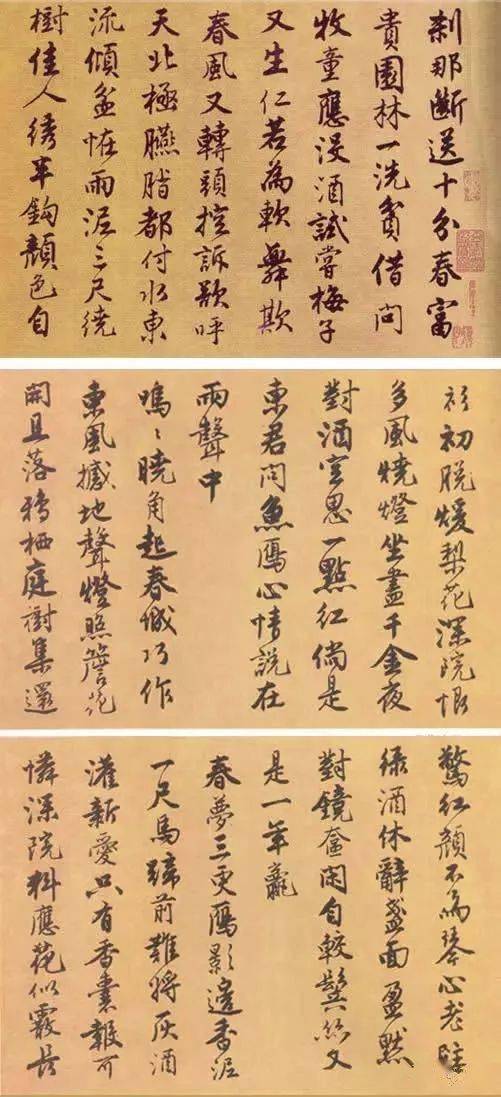 刹那斷送十分春富
貴園林一洗貧借問
牧童應沒酒試嘗梅子
又生仁若為軟舞欺
春風又轉頭控訴欲呼
天北極臙脂都付水東
流傾盆怪雨泥三尺繞
樹佳人綉半鈎顏色自
衫初脫煖梨花深院恨
多風燒燈坐盡千金夜
對酒空思一點紅倘是
東君問魚鴈心情說在
雨聲中
嗚〻曉角起春城巧作
東風撼地聲燈照簷花
開且落鴉栖庭樹集還
驚紅顏不為琴心老
綠酒休辭盞面盈默
對鏡奩閑自較鬢絲又
是一年虧
春夢三更鴈影邊香泥
一尺馬蹄前難將灰酒
灌新愛只有香囊報可
憐深院料應花似霰長